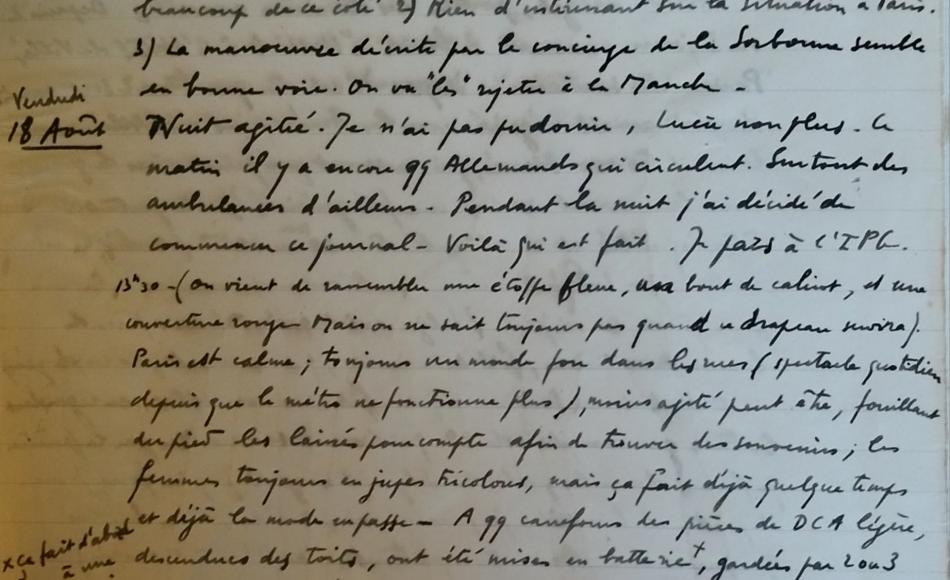 beaucoup de ce coté 2) Rien d'intéressant sur la situation à Paris.
3) La manoeuvre décrite par le concierge de la Sorbonne semble
en bonne voie. On va "les" rejeter à la Manche -
Vendredi
18 Août Nuit agitée. Je n'ai pas pu dormir, Lucie non plus. Ce
matin il y a encore qq Allemands qui circulent. Surtout des
ambulances d'ailleurs - Pendant la nuit j'ai décidé de
commencer ce journal - Voilà qui est fait. Je pars à l'IPG.
13h30 - (On vient de rassembler une étoffe bleue, un bout de calicot, et une
couverture rouge Mais on ne sait toujours pas quand ce drapeau servira).
Paris est calme; toujours un monde fou dans les rues (spectacle quotidien
depuis que le métro ne fonctionne plus), moins agité peut être, fouillant
du pied les laissés pour compte afin de trouver des souvenirs; les
femmes toujours en jupes tricolores, mais ça fait déjà quelque temps
et déjà la mode en passe - A qq carrefours des pièces de DCA légère,
descendues des toits, ont été mises en batterie+, gardées par 2 ou 3
x ça fait d'abord
à une